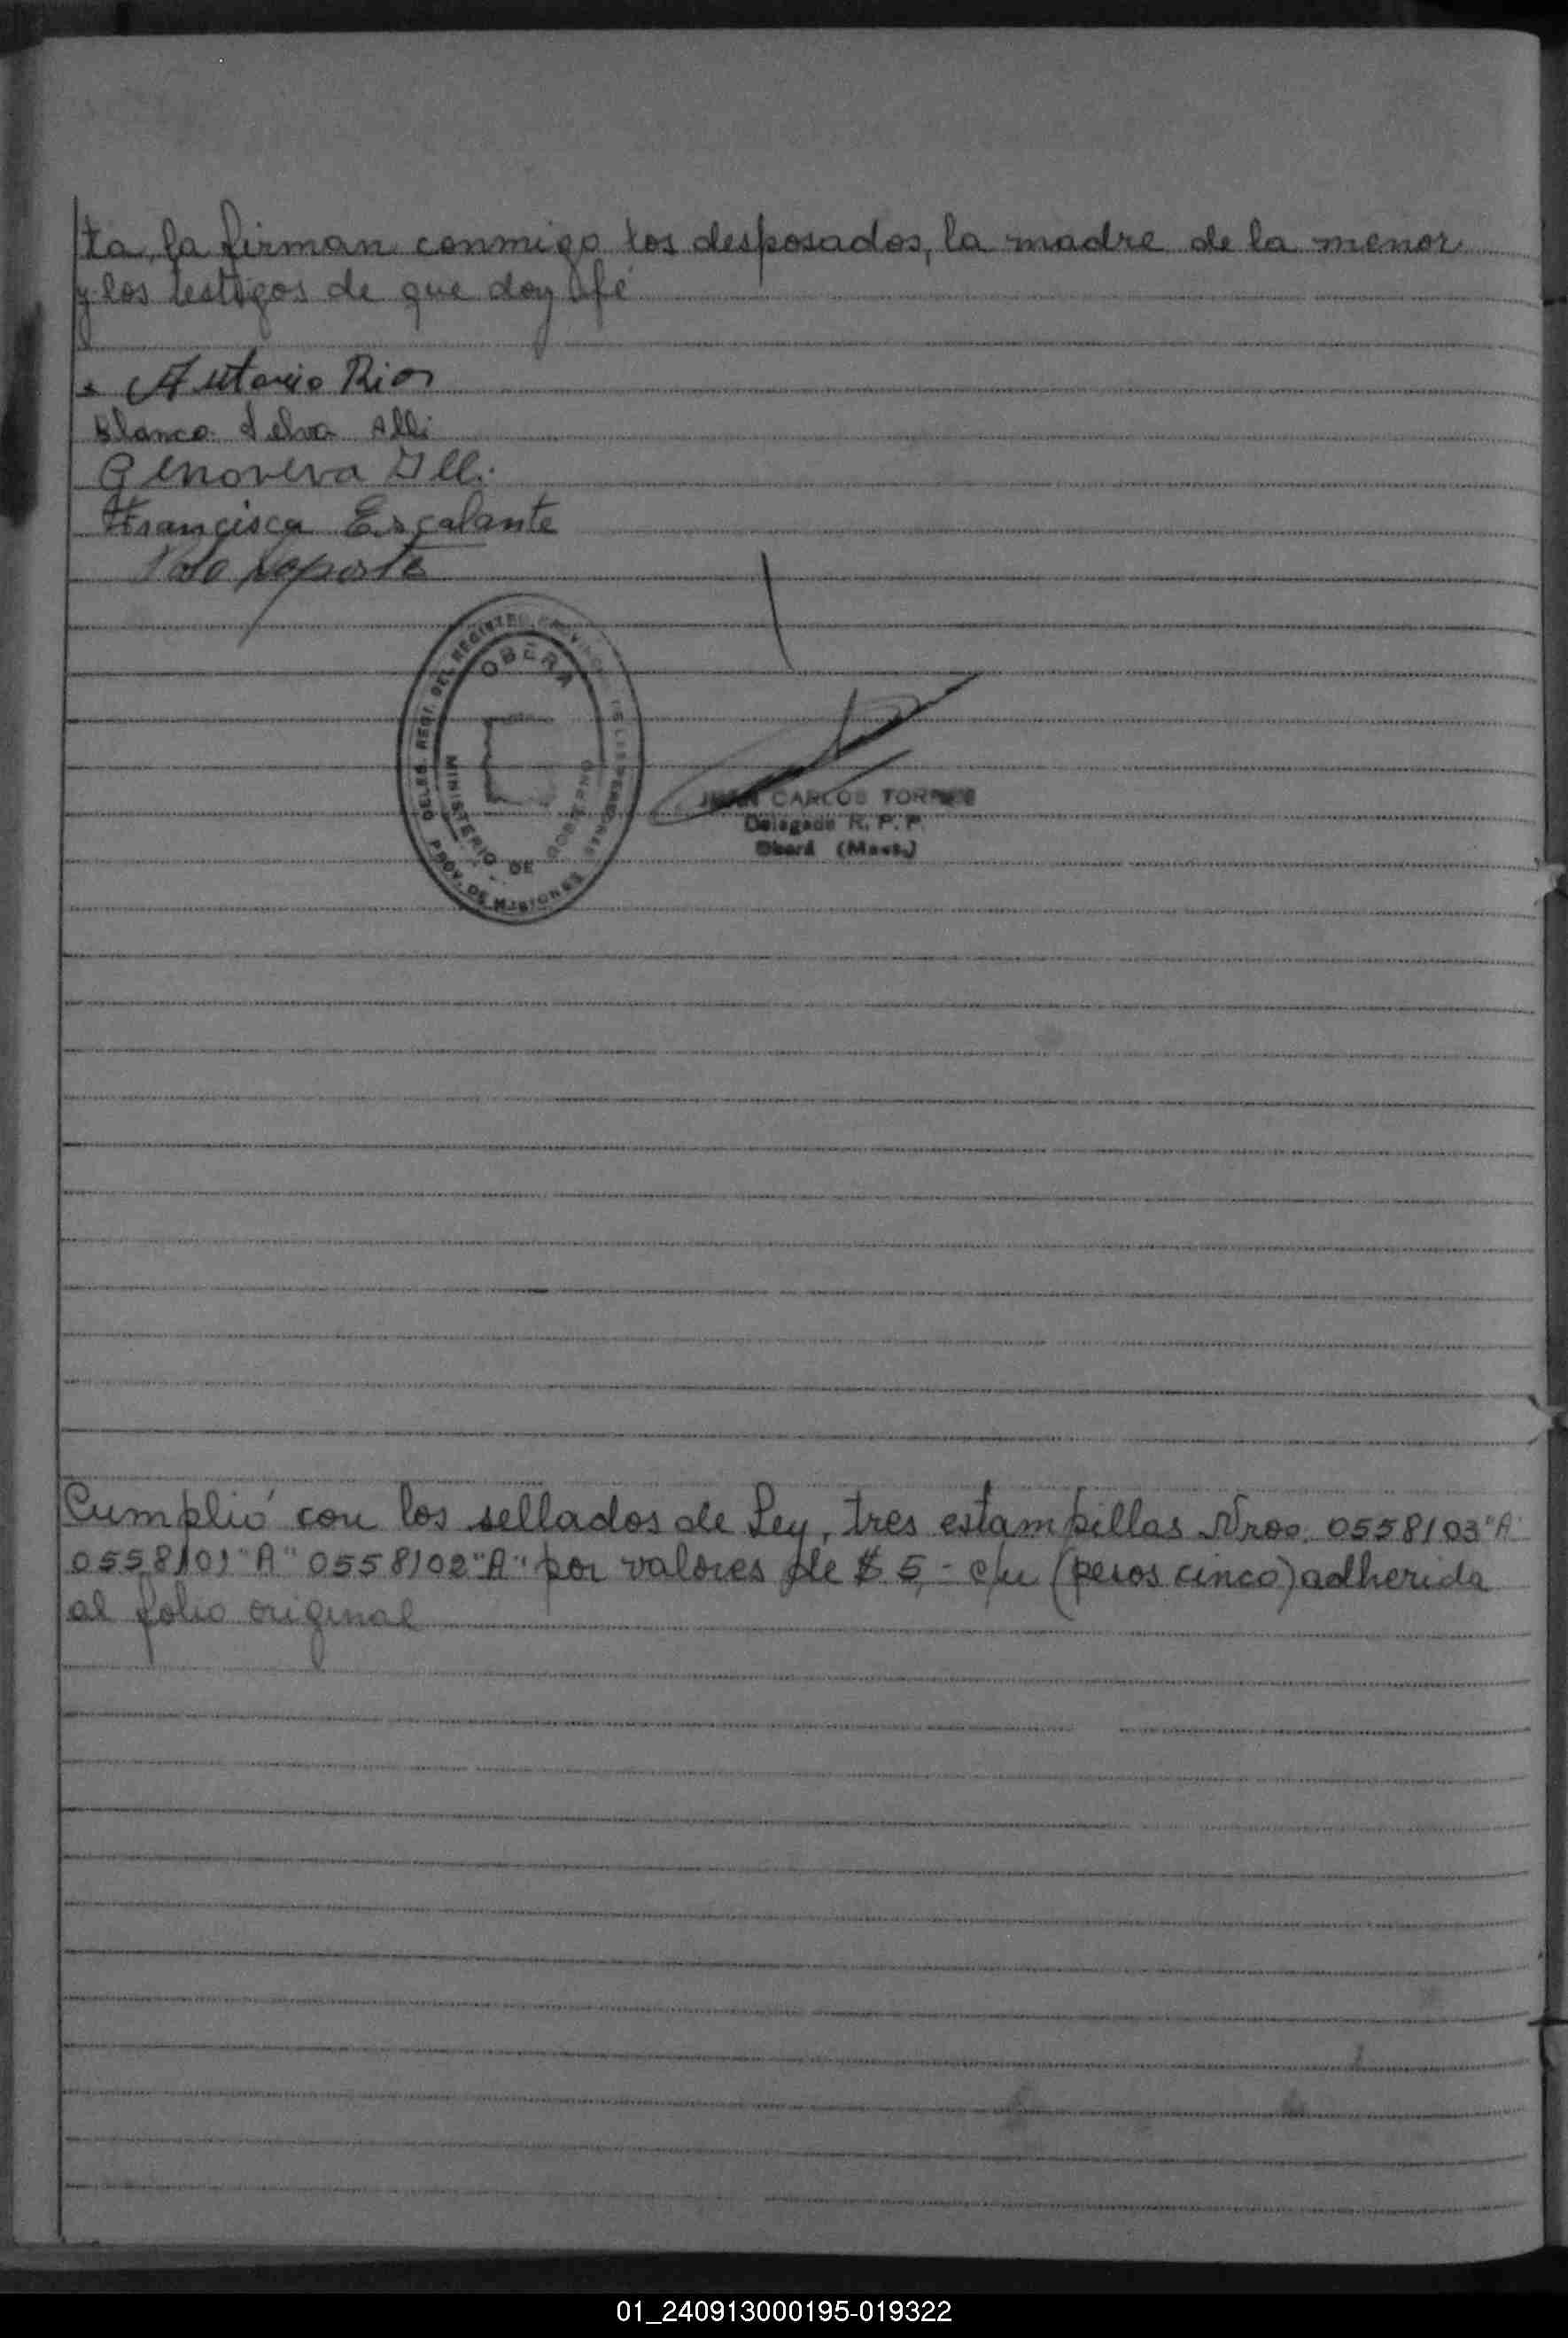 ta, la firman conmigo los desposados, la madre de la menor
y los testigos de que doy fé
Antonio Rios
Blanca Selva Alli
Genoveva Illi
Francisca Escalante
DELEG. REGI. DEL REGISTRO PROVINCIAL DE LAS PERSONAS
OBERA
MINISTERIO DE GOBIERNO
PROV. DE MISIONES
JUAN CARLOS TORRES
Delegado R. P. P.
Oberá (Mnes.)
Cumplió con los sellados de Ley, tres estampillas Nros. 0558103 "A"
0558101 "A" 0558102 "A" por valores de $ 5,- c/u (pesos cinco) adherida
al folio original
01_240913000195-019322